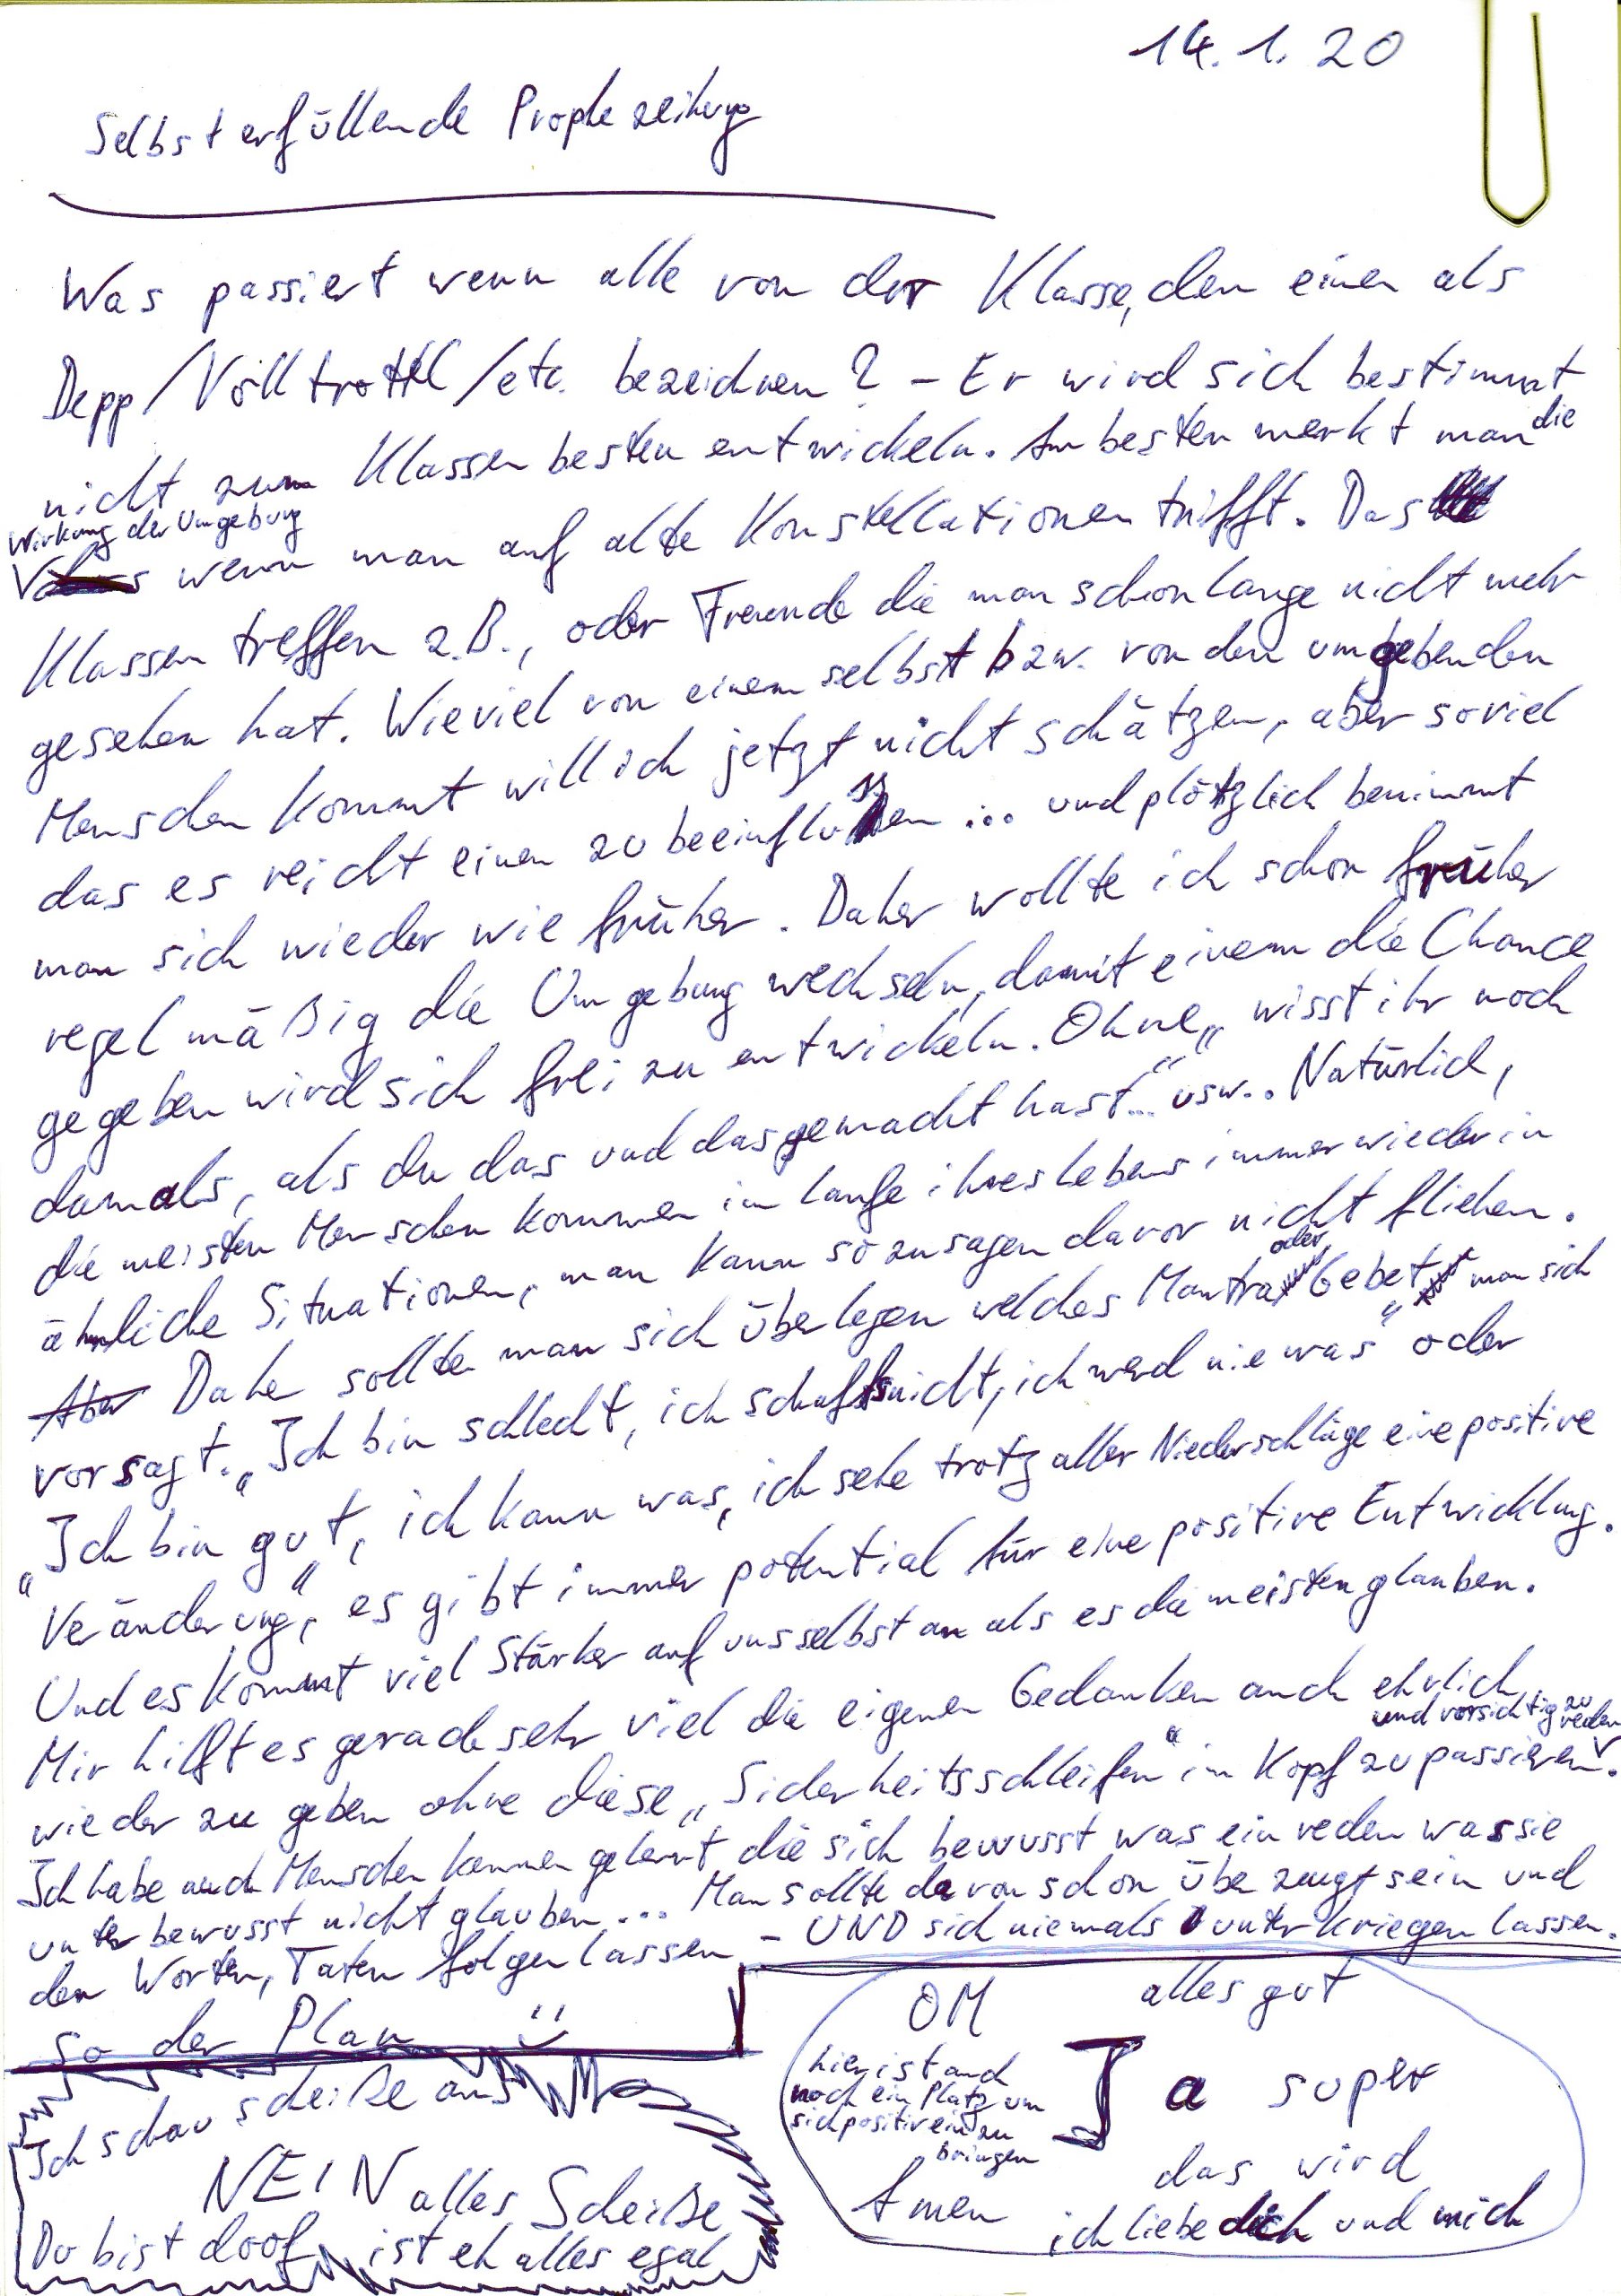 14. 1. 20
Selbsterfüllende Prophezeihung
Was passiert wenn alle von der Klasse, den einen als
Depp/Volltrottl/etc. bezeichnen? – Er wird sich bestimmt
nicht zum Klassenbesten entwickeln. Am besten merkt man die
Wirkung der Umgebung
wenn man auf alte Konstellationen trifft. Das
Klassentreffen z.B., oder Freunde die man schon lange nicht mehr
gesehen hat. Wieviel von einem selbst bzw. von den umgebenden
Menschen kommt will ich jetzt nicht schätzen, aber soviel
das es reicht einen zu beeinflussen ... und plötzlich benimmt
man sich wieder wie früher. Daher wollte ich schon früher
regelmäßig die Umgebung wechseln, damit einem die Chance
gegeben wird sich frei zu entwickeln. Ohne „wisst ihr noch
damals, als du das und das gemacht hast..." usw.. Natürlich,
die meisten Menschen kommen im laufe ihres Lebens immer wieder in
ähnliche Situationen, man kann sozusagen davor nicht fliehen.
Aber Dahe sollte man sich überlegen welches Mantra oder Gebet man sich
vorsagt. „Ich bin schlecht, ich schaff's nicht, ich werd nie was" oder
„Ich bin gut, ich kann was, ich sehe trotz aller Niederschläge eine positive
Veränderung", es gibt immer potential für eine positive Entwicklung.
Und es kommt viel stärker auf uns selbst an als es die meisten glauben.
Mir hilft es gerade sehr viel die eigenen Gedanken auch ehrlich
und vorsichtig zu reden
wieder zu geben ohne diese „Sicherheitsschleifen" im Kopf zu passieren.
Ich habe auch Menschen kennen gelernt die sich bewusst was einreden was sie
unterbewusst nicht glauben... Man sollte davon schon überzeugt sein und
den Worten, Taten folgen lassen – UND sich niemals unterkriegen lassen.
so der Plan
Ich schau scheiße aus
NEIN alles Scheiße
Du bist doof, ist eh alles egal
OM alles gut
hier ist auch
noch ein Platz um
sich positiv einzu
bringen
Ja super
das wird
Amen ich liebe dich und mich